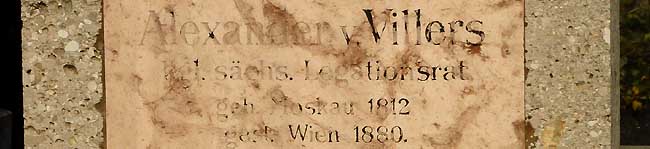 Alexander v. Villers
kgl. sächs. Legationsrat
geb. Moskau 1812
gest. Wien 1880.